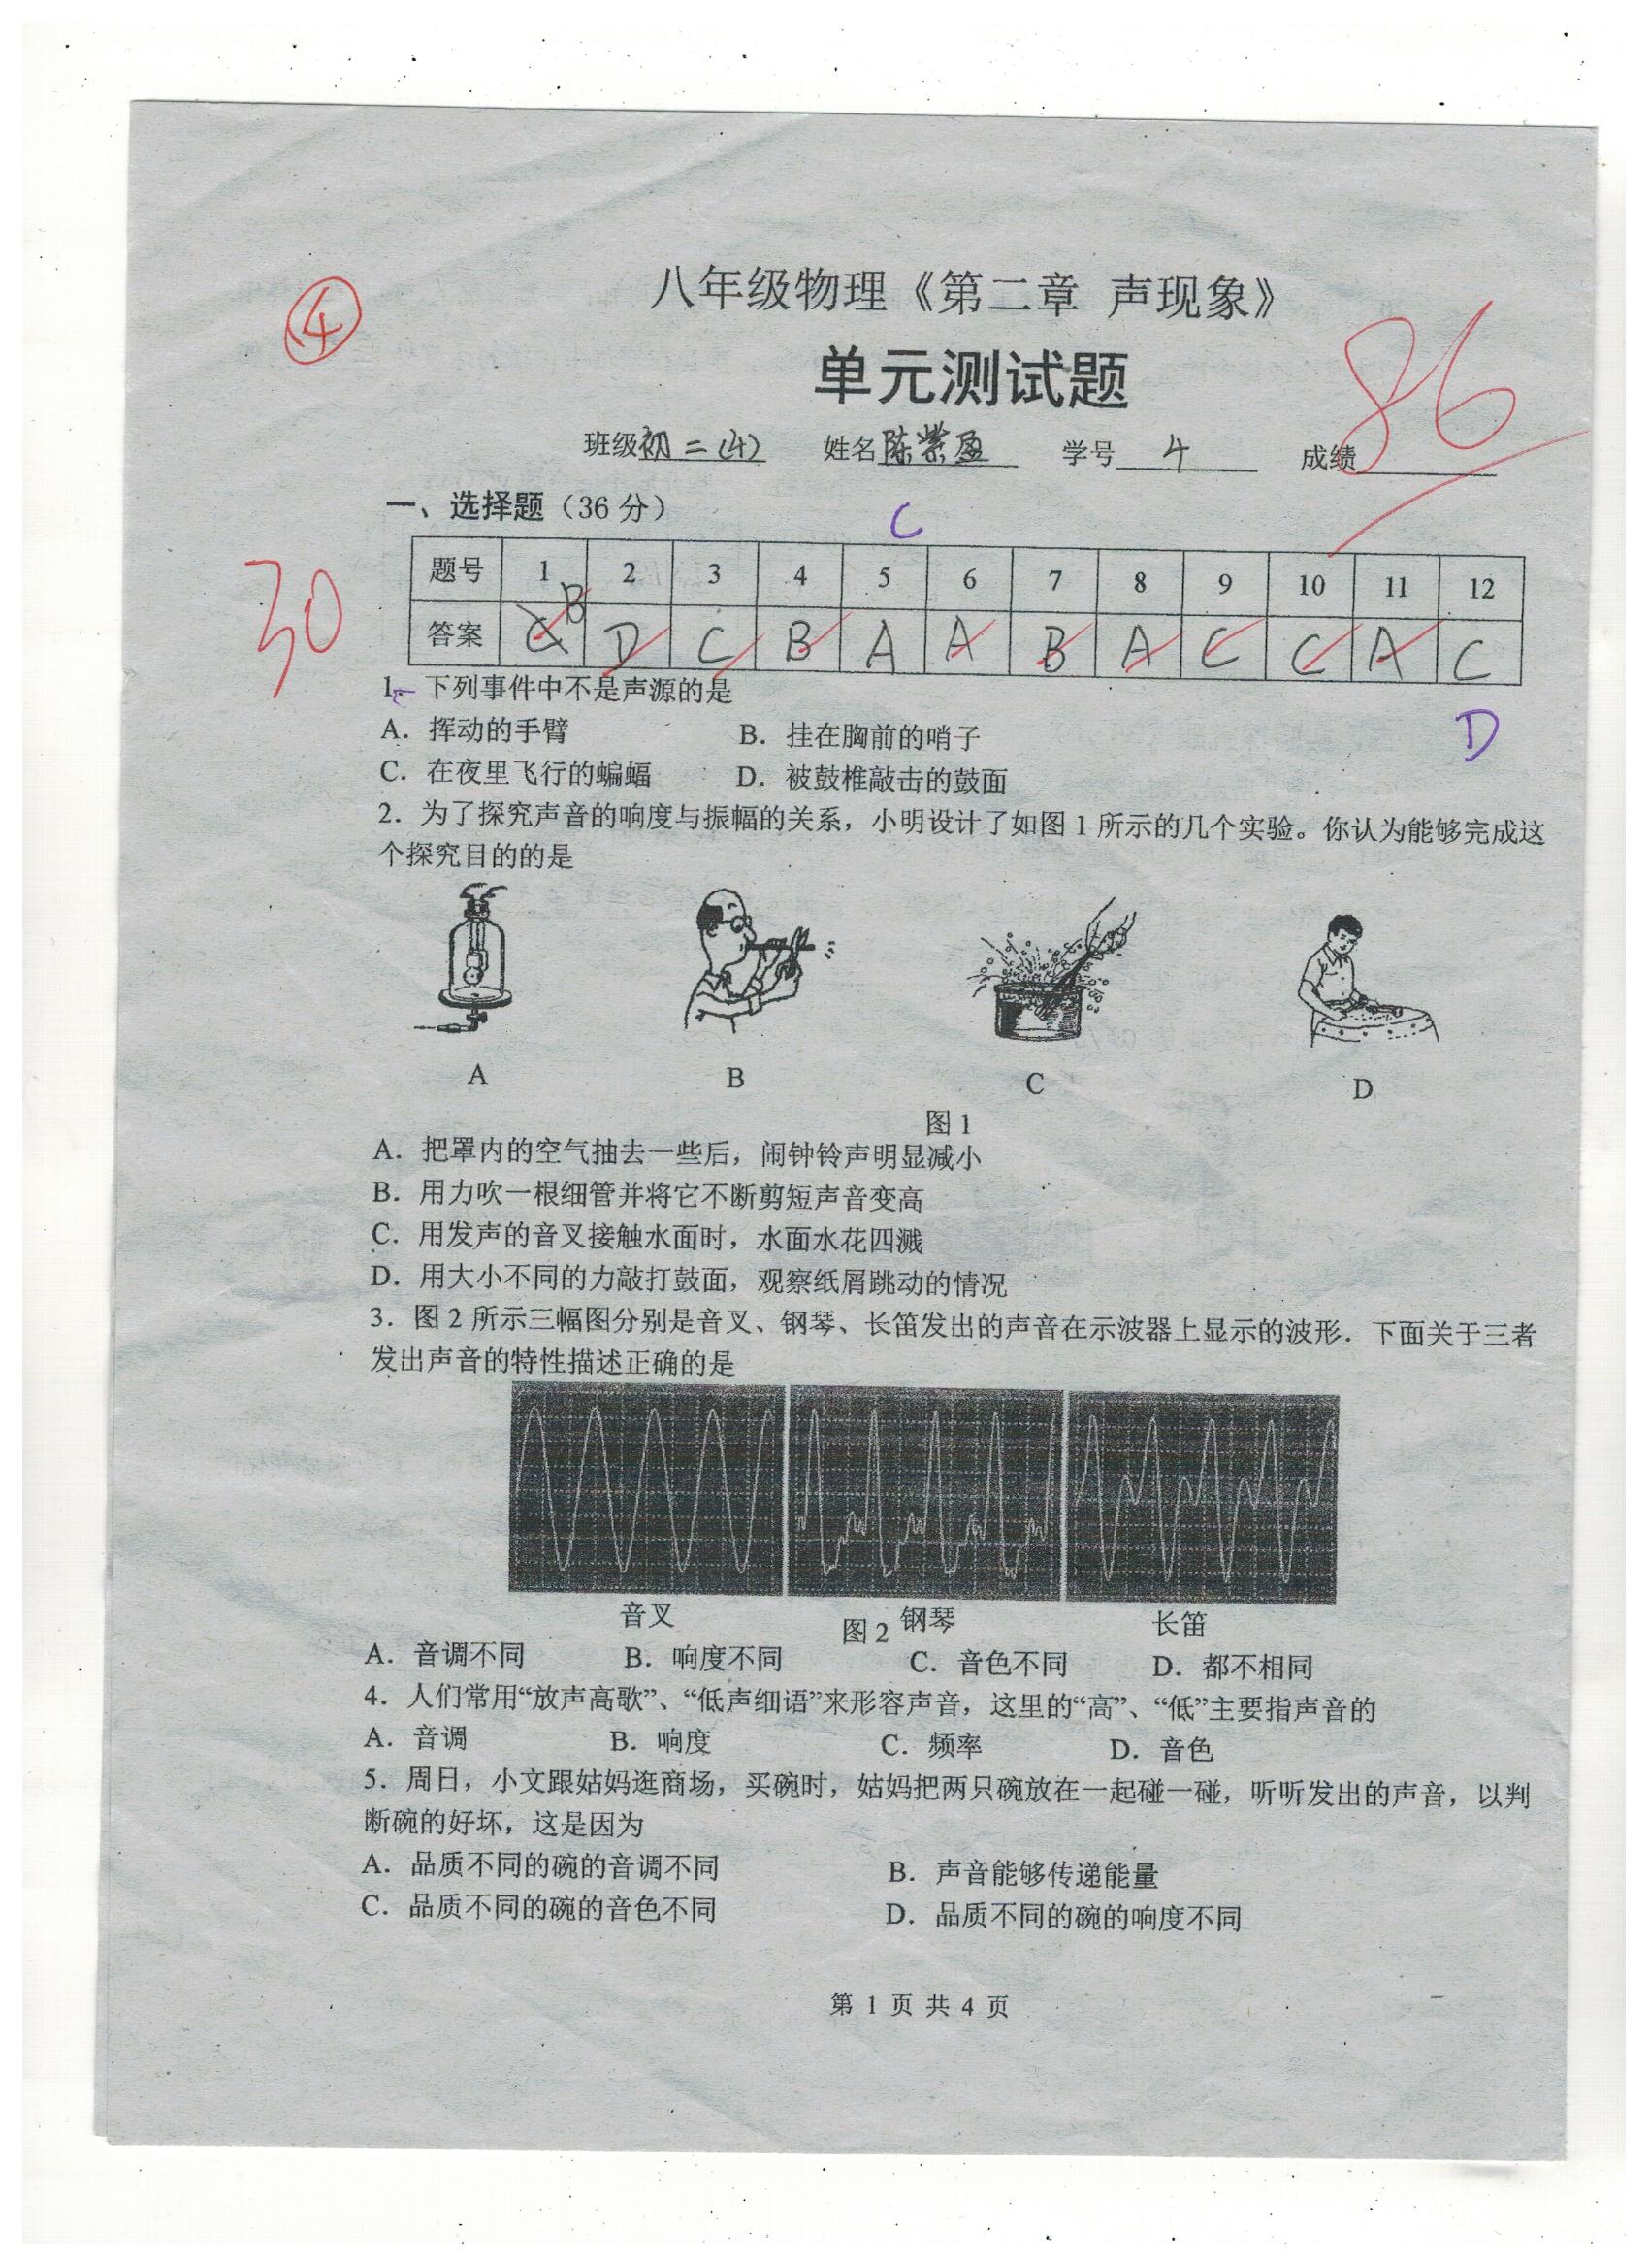 ④
八年级物理《第二章 声现象》
单元测试题
86
班级初二(4) 姓名陈紫盈 学号 4 成绩
一、选择题（36 分）
C
30
题号 1 2 3 4 5 6 7 8 9 10 11 12
答案 B D C B A A B A C C A C
D
1. 下列事件中不是声源的是
A．挥动的手臂 B．挂在胸前的哨子
C．在夜里飞行的蝙蝠 D．被鼓椎敲击的鼓面
2．为了探究声音的响度与振幅的关系，小明设计了如图 1 所示的几个实验。你认为能够完成这
个探究目的的是
A B C D
图 1
A．把罩内的空气抽去一些后，闹钟铃声明显减小
B．用力吹一根细管并将它不断剪短声音变高
C．用发声的音叉接触水面时，水面水花四溅
D．用大小不同的力敲打鼓面，观察纸屑跳动的情况
3．图 2 所示三幅图分别是音叉、钢琴、长笛发出的声音在示波器上显示的波形．下面关于三者
发出声音的特性描述正确的是
音叉 钢琴 长笛
图 2
A．音调不同 B．响度不同 C．音色不同 D．都不相同
4．人们常用“放声高歌”、“低声细语”来形容声音，这里的“高”、“低”主要指声音的
A．音调 B．响度 C．频率 D．音色
5．周日，小文跟姑妈逛商场，买碗时，姑妈把两只碗放在一起碰一碰，听听发出的声音，以判
断碗的好坏，这是因为
A．品质不同的碗的音调不同 B．声音能够传递能量
C．品质不同的碗的音色不同 D．品质不同的碗的响度不同
第 1 页 共 4 页